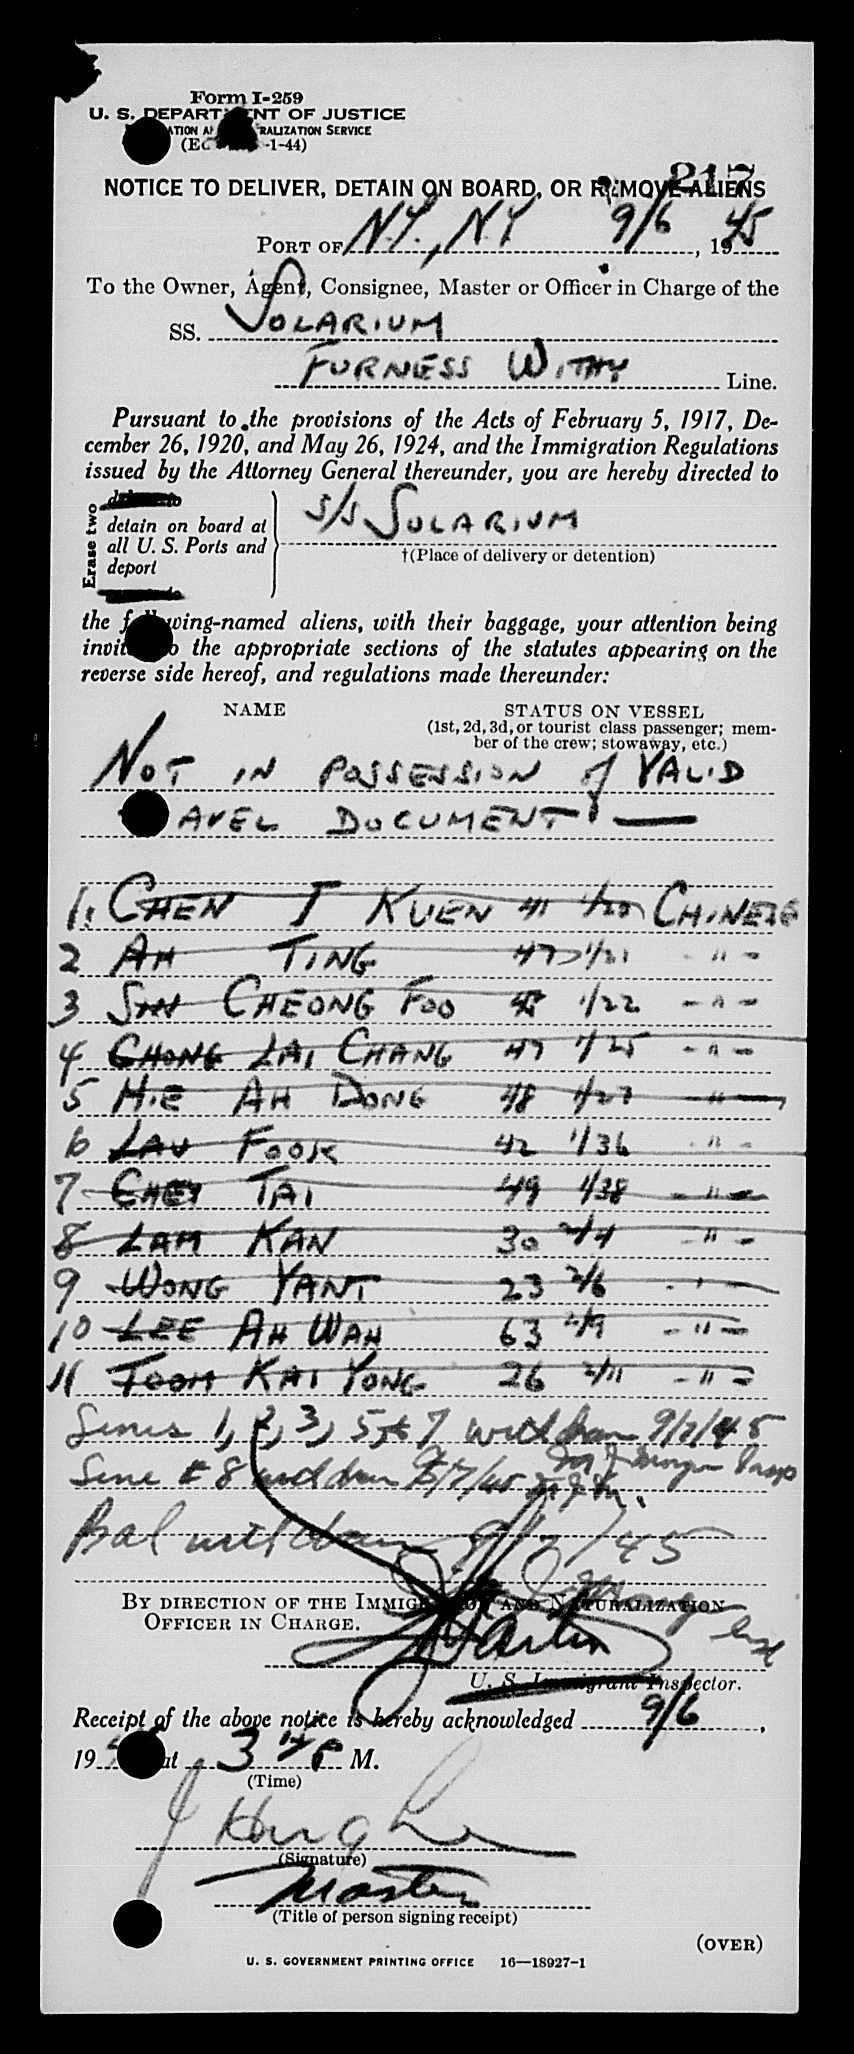 Form I-259
U. S. DEPARTMENT OF JUSTICE
RALIZATION SERVICE
-1-44)
217
NOTICE TO DELIVER, DETAIN ON BOARD, OR REMOVE ALIENS
PORT OF N.Y., N.Y 9/6, 1945
To the Owner, Agent, Consignee, Master or Officer in Charge of the
SS. SOLARIUM
FURNESS WITHY Line.
Pursuant to the provisions of the Acts of February 5, 1917, De-
cember 26, 1920, and May 26, 1924, and the Immigration Regulations
issued by the Attorney General thereunder, you are hereby directed to
Erase two
detain on board at
all U. S. Ports and
deport
S/S SOLARIUM
†(Place of delivery or detention)
the following-named aliens, with their baggage, your attention being
invited to the appropriate sections of the statutes appearing on the
reverse side hereof, and regulations made thereunder:
NAME STATUS ON VESSEL
(1st, 2d, 3d, or tourist class passenger; mem-
ber of the crew; stowaway, etc.)
NOT IN POSSESSION of VALID
AVEL DOCUMENT —
1. CHEN I KUEN 41 1/20 CHINESE
2 AH TING 47 1/21 - " -
3 SIN CHEONG FOO 45 1/22 - " -
4 CHONG LAI CHANG 47 1/25 - " -
5 HIE AH DONG 48 1/27 - " -
6 LAU FOOK 42 1/36 - " -
7 CHEY TAI 49 1/38 - " -
8 LAM KAN 30 2/4 - " -
9 WONG YANT 23 2/6 - " -
10 LEE AH WAH 63 2/9 - " -
11 TOOM KAI YONG 26 2/11 - " -
Lines 1, 2, 3, 5, & 7 withdrawn 9/7/45
Line # 8 withdrawn 9/7/45 Insp
Bal withdrawn 9/7/45
BY DIRECTION OF THE IMMIGRATION AND NATURALIZATION
OFFICER IN CHARGE.
U. S. Immigrant Inspector.
Receipt of the above notice is hereby acknowledged 9/6,
19 at 3 P M.
(Time)
J Hughe
(Signature)
Master
(Title of person signing receipt)
(OVER)
U. S. GOVERNMENT PRINTING OFFICE 16—18927-1